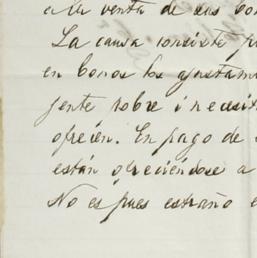 a la venta de sus bon
La causa consiste p
en bonos los ajustam
gente sobre i necesit
ofrecen. En pago de
están ofreciéndose a
No es pues estraño e